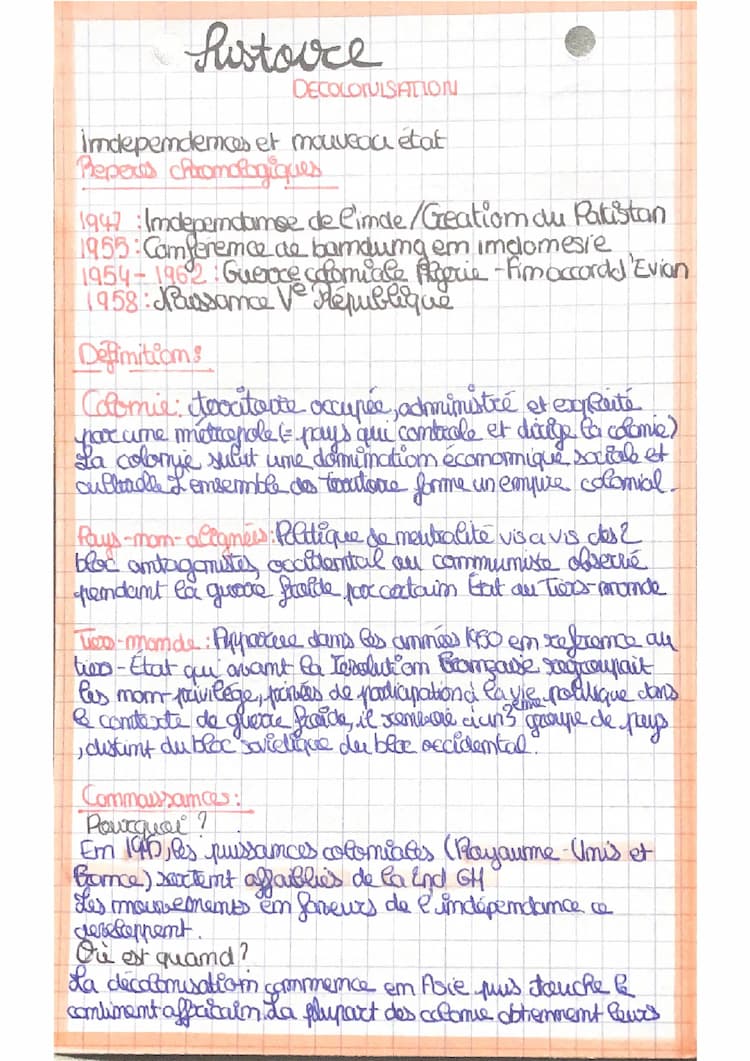 histoire
DECOLONISATION
Independences et nouveau état
Reperes chronologiques
1947 : Independanse de l'inde/Creation du Pakistan
1955 : Conference de bandung en indonesie
1954-1962 : Guerre coloniale Algerie - Fin accord d'Evian
1958 : Naissance Ve République
Definitions
Colonie : territoire occupée, administré et exploité
par une métropole (= pays qui controle et dirige la colonie)
La colonie subit une domination économique sociale et
culturelle L'ensemble des territoire forme un empire colonial.
Pays-non-alignées : Politique de neutralité vis a vis des 2
bloc antagonistes, occidental ou communiste observé
pendant la guerre froide par certain État du Tiers-monde
Tiers-monde : Apparue dans les années 1950 en reference au
tiers-État qui avant la revolution Française regroupait
les non-privilège, privés de participation à la vie politique dans
le contexte de guerre froide, il renvoie à un 3ème groupe de pays
, distint du bloc sovietique du bloc occidental.
Connaissances :
Pourquoi ?
En les puissances coloniales (Royaume-Unis et
France) sortent affaiblies de la 2nd GM
Les mouvements en faveurs de l'indépendance ce
developpent.
Où et quand ?
La décolonisation commence en Asie puis touche le
continent affricain. La plupart des colonie obtiennent leurs